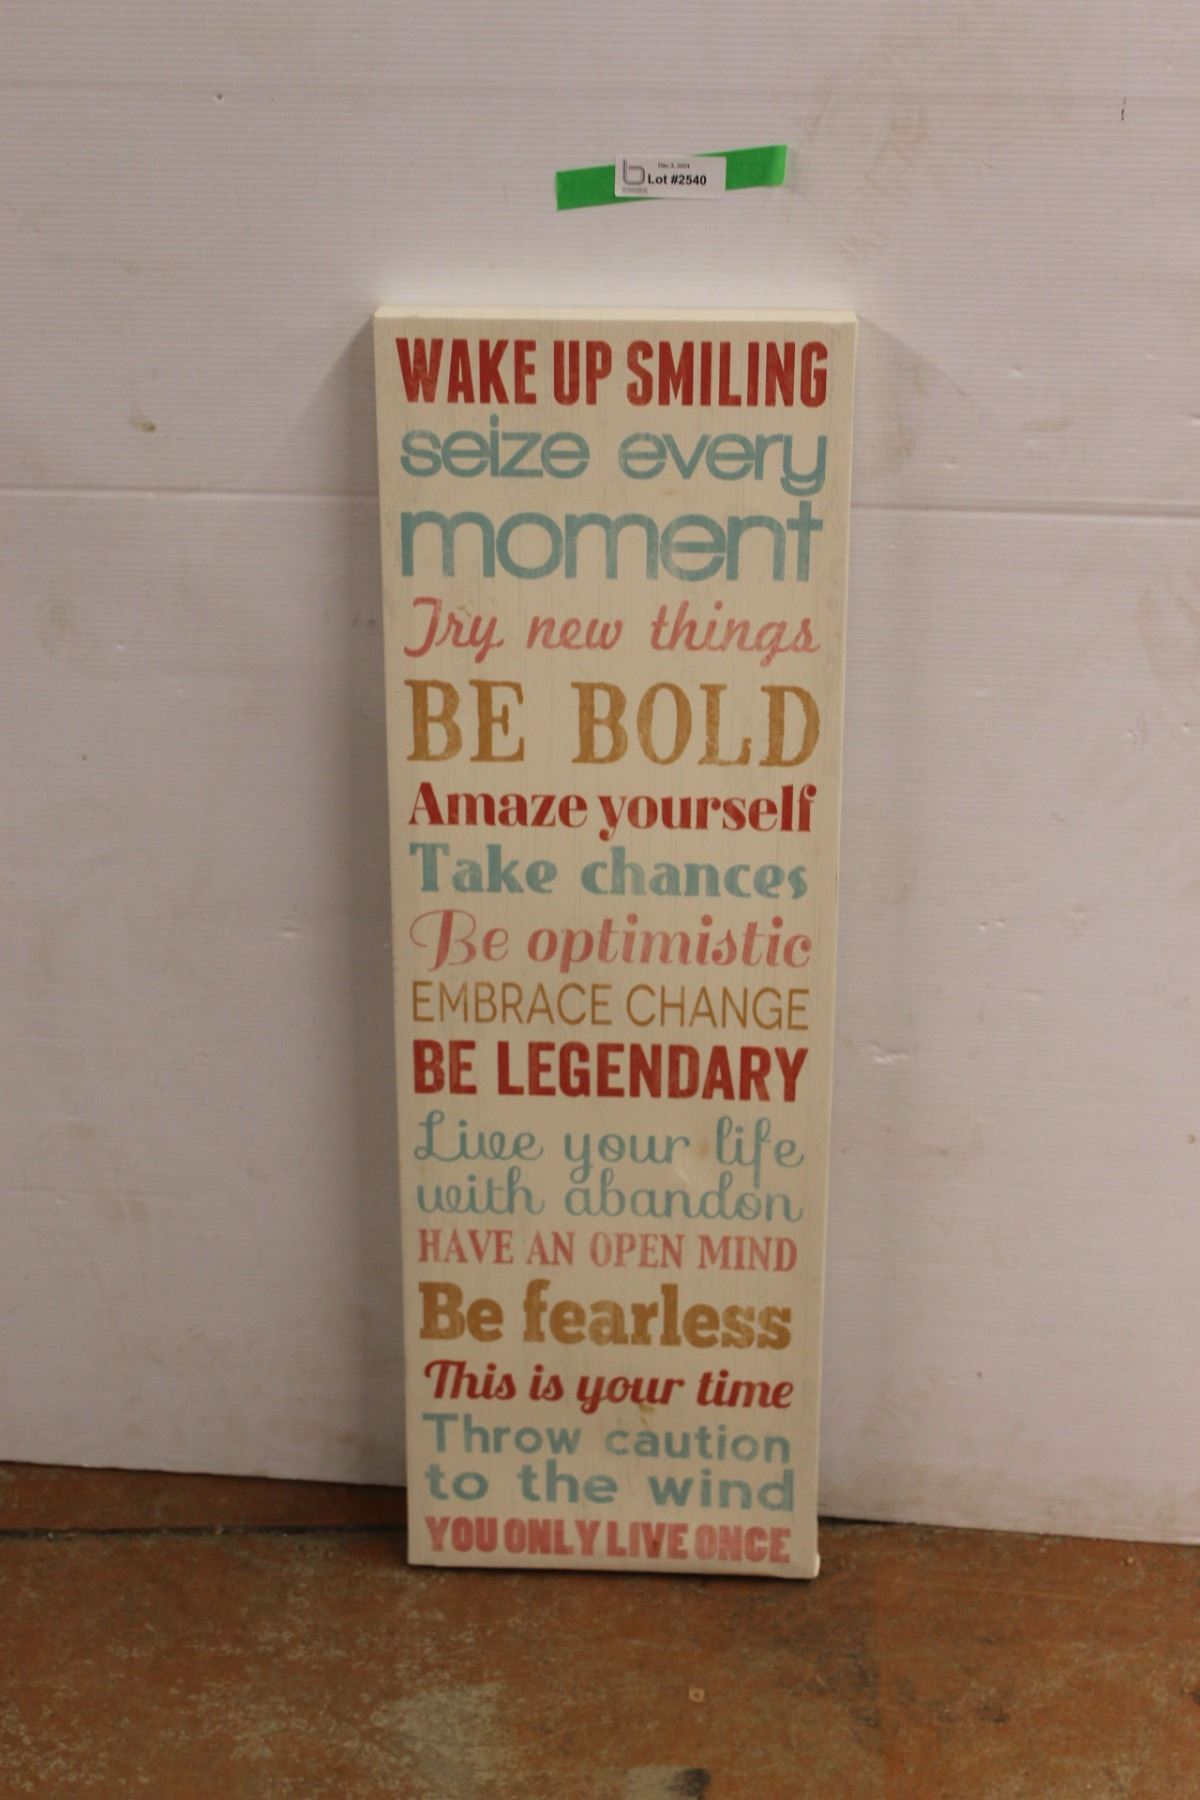 Dec 3, 2024
Lot #2540
WAKE UP SMILING
seize every
moment
Try new things
BE BOLD
Amaze yourself
Take chances
Be optimistic
EMBRACE CHANGE
BE LEGENDARY
Live your life
with abandon
HAVE AN OPEN MIND
Be fearless
This is your time
Throw caution
to the wind
YOU ONLY LIVE ONCE